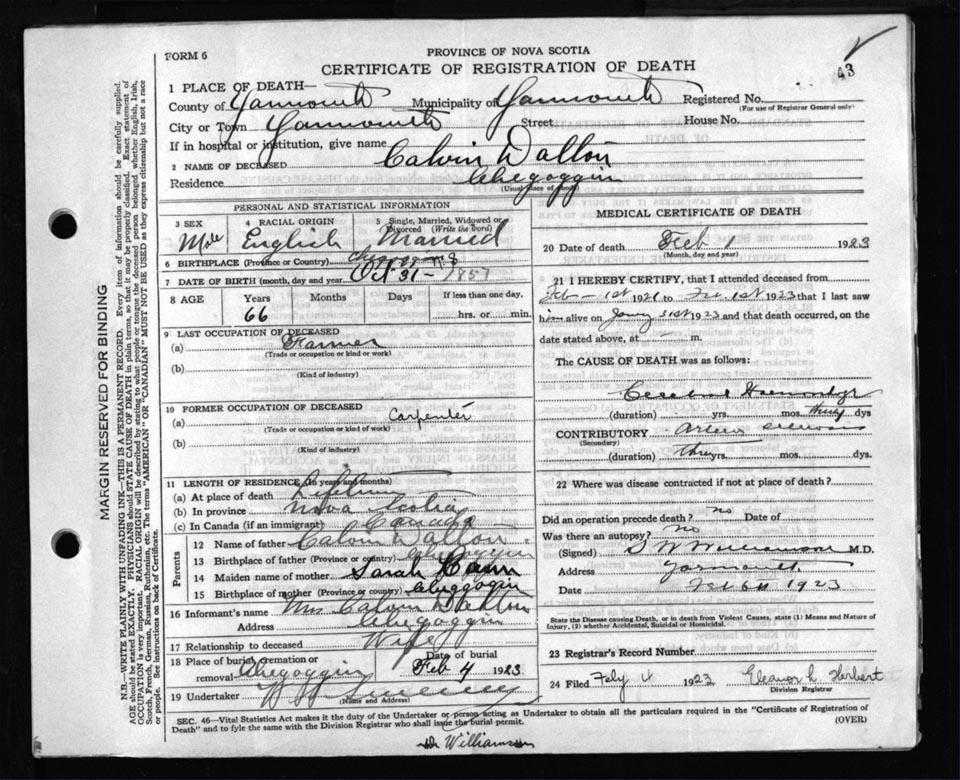 43
FORM 6
PROVINCE OF NOVA SCOTIA
CERTIFICATE OF REGISTRATION OF DEATH
1 PLACE OF DEATH—
County of Yarmouth Municipality of Yarmouth Registered No.
(For use of Registrar General only)
City or Town Yarmouth Street House No.
If in hospital or institution, give name
2 NAME OF DECEASED Calvin Dalton
Residence Chegoggin
(Usual place of abode)
PERSONAL AND STATISTICAL INFORMATION
3 SEX Male
4 RACIAL ORIGIN English
5 Single, Married, Widowed or Divorced (Write the word) Married
6 BIRTHPLACE (Province or Country) Chegoggin N.S
7 DATE OF BIRTH (month, day and year) Oct 31- 1857
8 AGE Years Months Days If less than one day,
66 hrs. or min.
9 LAST OCCUPATION OF DECEASED
(a) Farmer
(Trade or occupation or kind or work)
(b)
(Kind of industry)
10 FORMER OCCUPATION OF DECEASED
(a) Carpenter
(Trade or occupation or kind of work)
(b)
(Kind of industry)
11 LENGTH OF RESIDENCE (in years and months)
(a) At place of death Lifetime
(b) In province Nova Scotia
(c) In Canada (if an immigrant) Canada
Parents
12 Name of father Calvin Dalton
13 Birthplace of father (Province or country) Chegoggin
14 Maiden name of mother Sarah Cann
15 Birthplace of mother (Province or country) Chegoggin
16 Informant's name Mrs Calvin Dalton
Address Chegoggin
17 Relationship to deceased Wife
18 Place of burial, cremation or removal— Chegoggin
Date of burial Feb 4 1923
19 Undertaker Sweeney
(Name and Address)
MEDICAL CERTIFICATE OF DEATH
20 Date of death Feb 1 1923
(Month, day and year)
21 I HEREBY CERTIFY, that I attended deceased from
Feb - 1st 1921 to Feb 1st 1923 that I last saw
him alive on Janry 31st 1923 and that death occurred, on the
date stated above, at — m.
The CAUSE OF DEATH was as follows:
Cerebral Haemorrhage
(duration) yrs. mos. thirty dys
CONTRIBUTORY Arterio sclerosis
(Secondary)
(duration) three yrs. mos. dys.
22 Where was disease contracted if not at place of death?
Did an operation precede death? no Date of
Was there an autopsy? no
(Signed) S W Williamson M.D.
Address Yarmouth
Date Feb 6th 1923
State the Disease causing Death, or in death from Violent Causes, state (1) Means and Nature of Injury, (2) whether Accidental, Suicidal or Homicidal.
23 Registrar's Record Number
24 Filed Feby 4 1923 Eleanor L Herbert
Division Registrar
SEC. 46—Vital Statistics Act makes it the duty of the Undertaker or person acting as Undertaker to obtain all the particulars required in the "Certificate of Registration of
Death" and to fyle the same with the Division Registrar who shall issue the burial permit. (OVER)
Dr Williamson
MARGIN RESERVED FOR BINDING
N.B.—WRITE PLAINLY WITH UNFADING INK—THIS IS A PERMANENT RECORD. Every item of information should be carefully supplied.
AGE should be stated EXACTLY. PHYSICIANS should STATE CAUSE OF DEATH in plain terms, so that it may be properly classified. Exact statement of
OCCUPATION is very important. RACIAL ORIGIN will be described by stating to what people or tongue the deceased person belonged whether English, Irish,
Scotch, French, German, Russian, Ruthenian, etc. The terms "AMERICAN" or "CANADIAN" MUST NOT BE USED as they express citizenship but not a race
or people. See instructions on back of Certificate.